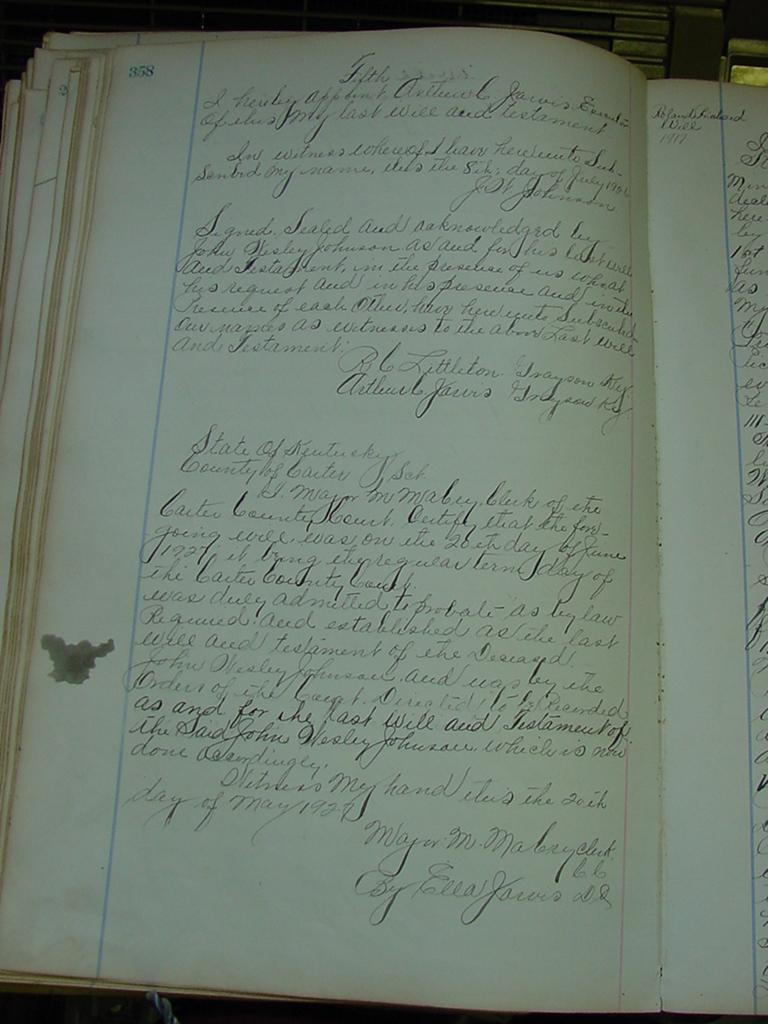 358
Fifth
I hereby appoint Arthur C Jarvis Executor
Of this my last will and testament
In witness whereof I have hereunto Sub-
scribed my name, this the 8th, day of July
J. W Johnson
Signed. Sealed and acknowledged by
John Wesley Johnson as and for his last will
And Testament, in the presence of us who at
his request and in his presence and in the
Presence of each Other, have hereunto Subscribed
Our names as witnesses to the above Last Will
And Testament.
R C Littleton Grayson Ky.
Arthur C Jarvis Grayson Ky
State Of Kentucky
County of Carter Sct.
I. Major M Mabry, Clerk of the
Carter County Court. Certify that the fore-
going will was on the 20th day of June
1927, it being the regular term day of
the Carter County Court.
was duly admitted to probate as by law
Required. and established as the last
will and testament of the Deceased.
John Wesley Johnson. and was by the
Orders of the Court. Directed to be Recorded
as and for the last will and Testament of
the Said John Wesley Johnson. which is now
done accordingly.
Witness My hand this the 20th
day of May 1927
Major M. Mabry Clerk
C C
By Ella Jarvis D C
Will
1917